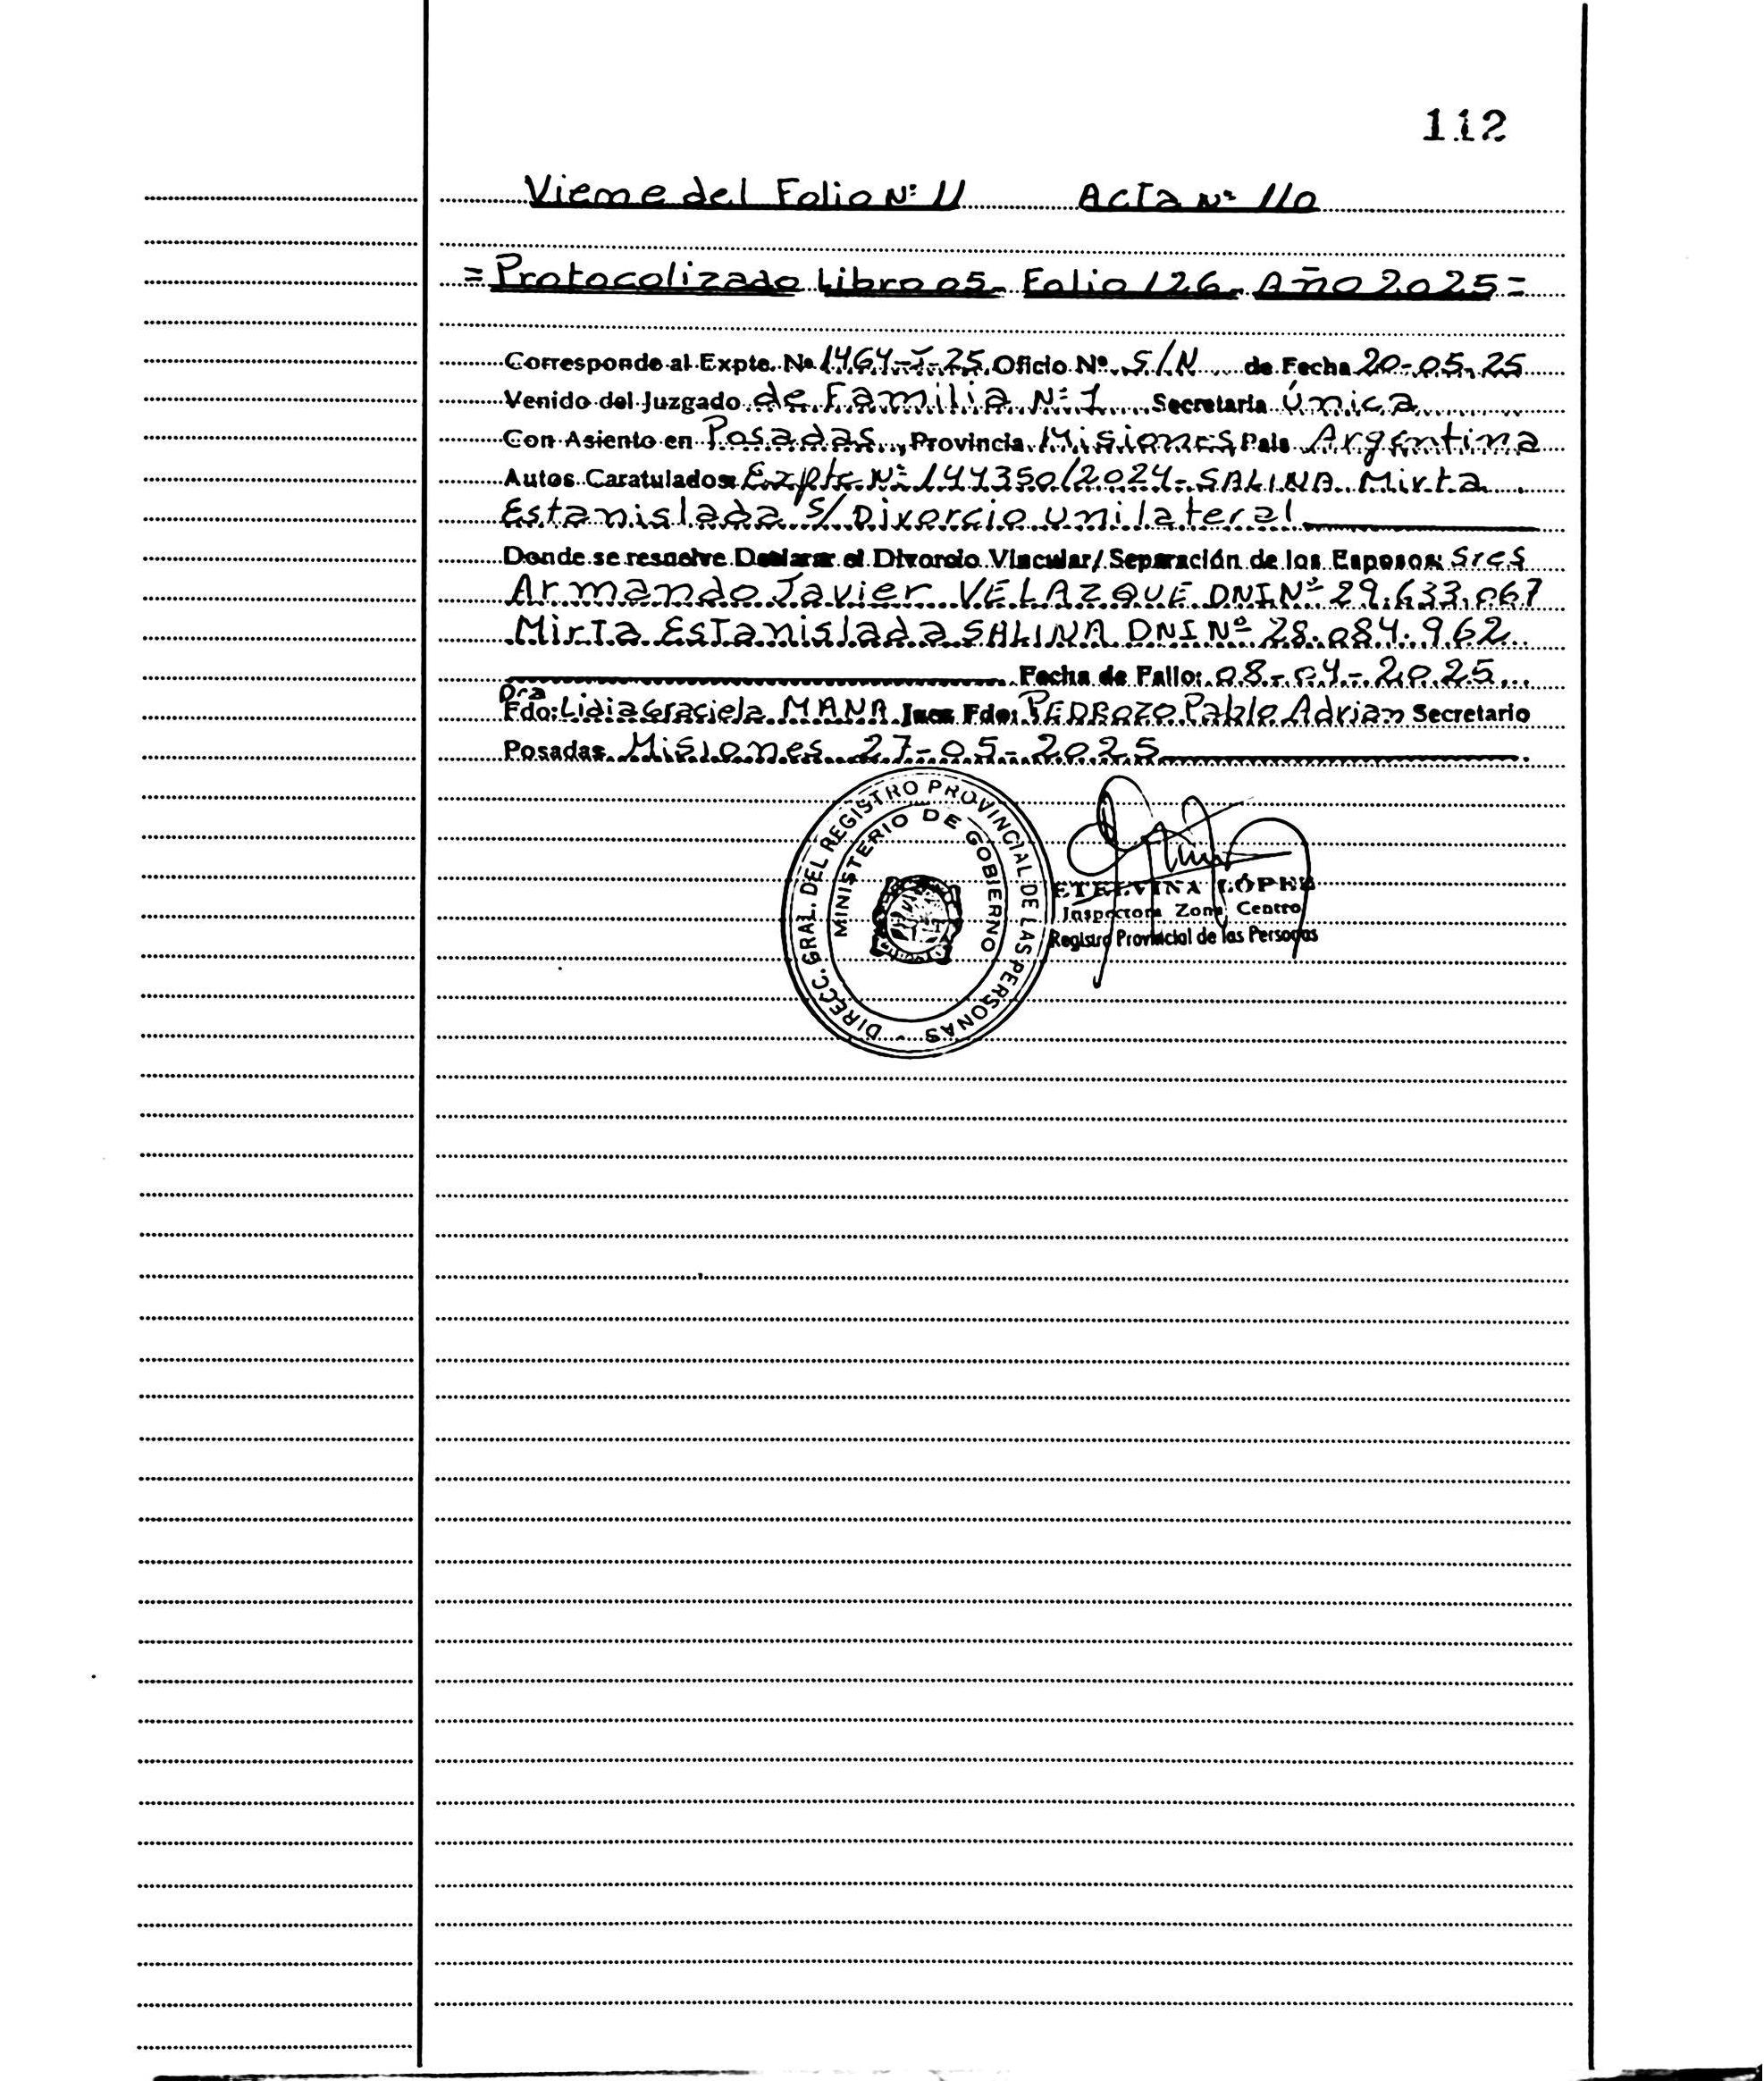 112
Viene del Folio Nº 11 Acta Nº 110
= Protocolizado Libro 05 - Folio 126 - Año 2025 =
Corresponde al Expte. Nº 1464-J-25 Oficio Nº S/N de Fecha 20-05-25
Venido del Juzgado de Familia Nº 1 Secretaria Única
Con Asiento en Posadas, Provincia Misiones Pais Argentina
Autos Caratulados: Expte Nº 144350/2024 - SALINA Mirta
Estanislada S/ Divorcio Unilateral
Donde se resuelve Declarar el Divorcio Vincular/Separación de los Esposos: Sres
Armando Javier VELAZQUE DNI Nº 29.633.067
Mirta Estanislada SALINA DNI Nº 28.084.962
Fecha de Fallo: 08-04-2025
Dra
Fdo: Lidia Graciela MANA Juez Fdo: PEDROZO Pablo Adrian Secretario
Posadas Misiones 27-05-2025
DIRECC. GRAL. DEL REGISTRO PROVINCIAL DE LAS PERSONAS -
MINISTERIO DE GOBIERNO
ETELVINA LÓPEZ
Inspectora Zona Centro
Registro Provincial de las Personas